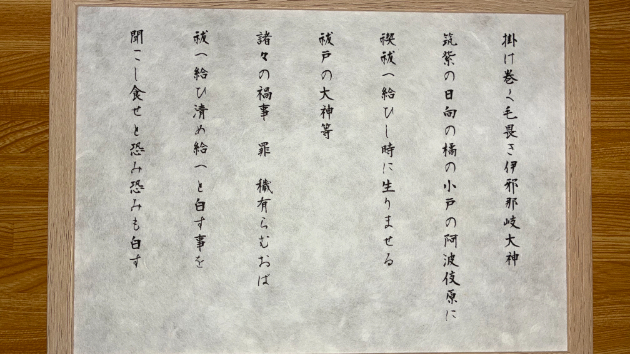 掛け巻く毛畏き伊邪那岐大神
筑紫の日向の橘の小戸の阿波伎原に
禊祓へ給ひし時に生りませる
祓戸の大神等
諸々の禍事 罪 穢有らむおば
祓へ給ひ清め給へと白す事を
聞こし食せと恐み恐みも白す